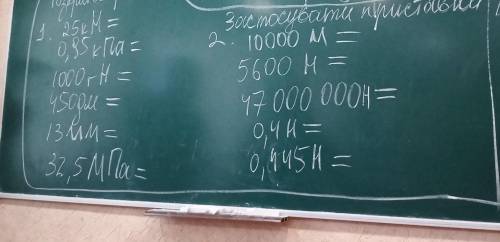 1. 25 кМ =
0,85 кПа =
1000 гН =
450 дм =
13 мм =
32,5 МПа =
Застосувати приставки
2. 10000 М =
5600 Н =
47 000 000 Н =
0,4 Н =
0,445 Н =